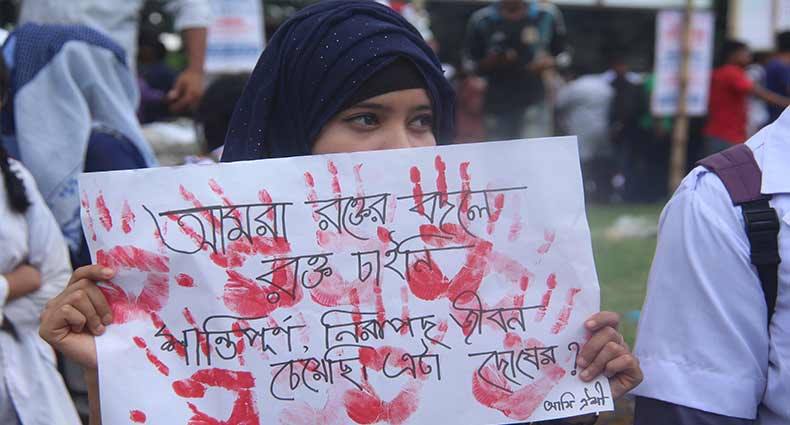 আমরা রক্তের বদলে
রক্ত চাইনি
শান্তিপূর্ণ, নিরাপদ জীবন
চেয়েছি এটা দোষের?
আমি ঐশী